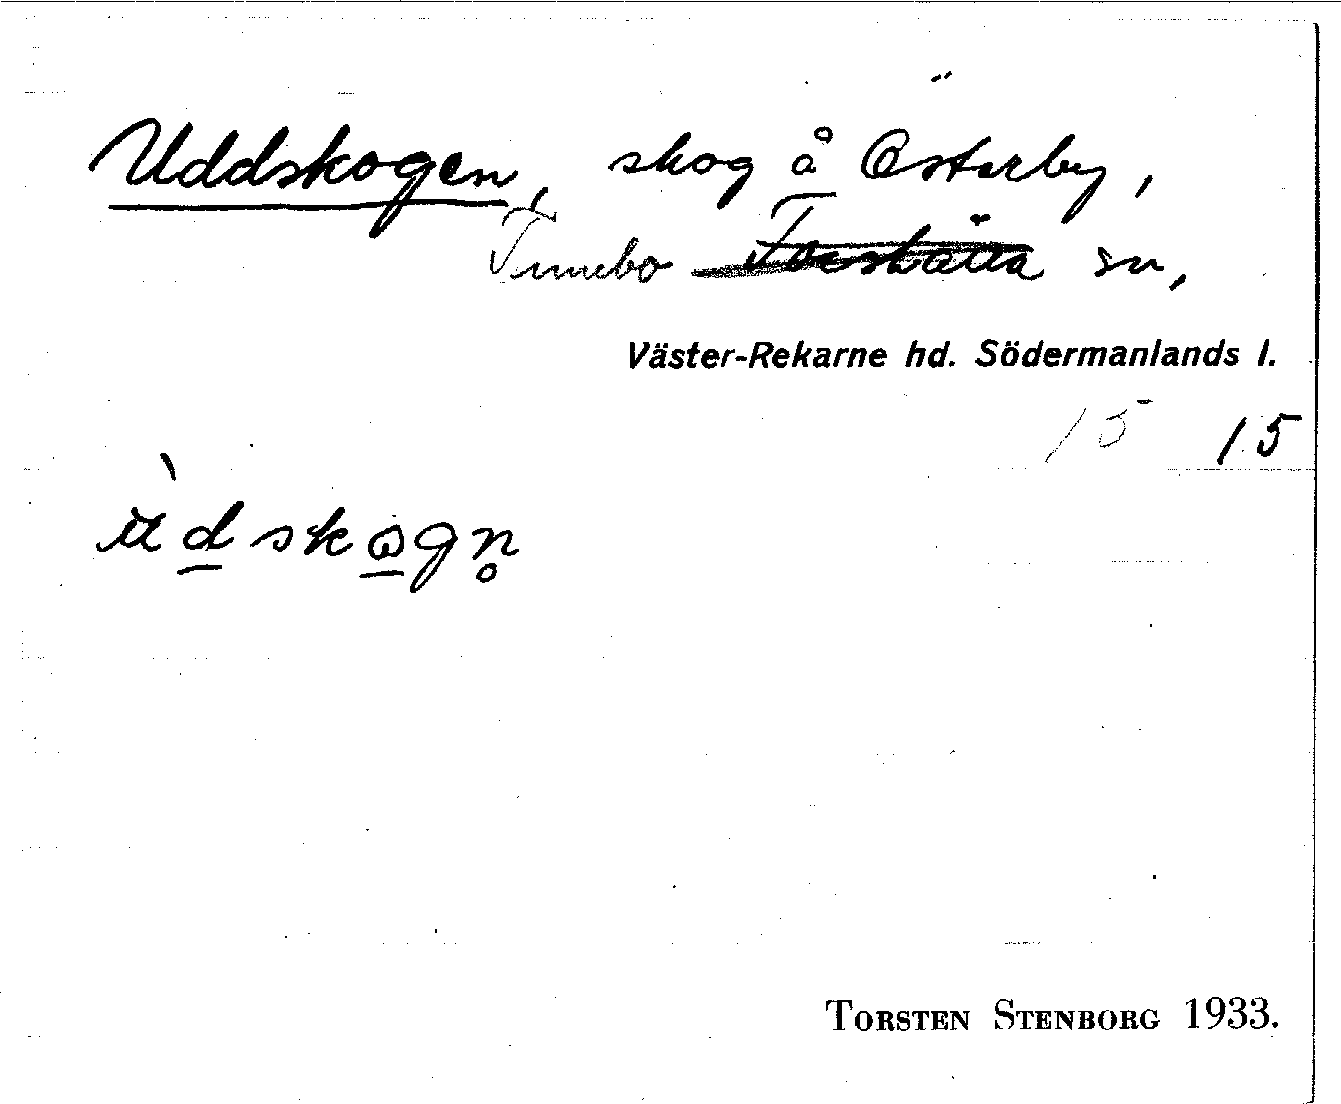 Uddskogen, skog å Österby,
Tumbo Torshälla sn,
Väster-Rekarne hd. Södermanlands l.
15 15
ùdskogn̥
TORSTEN STENBORG 1933.